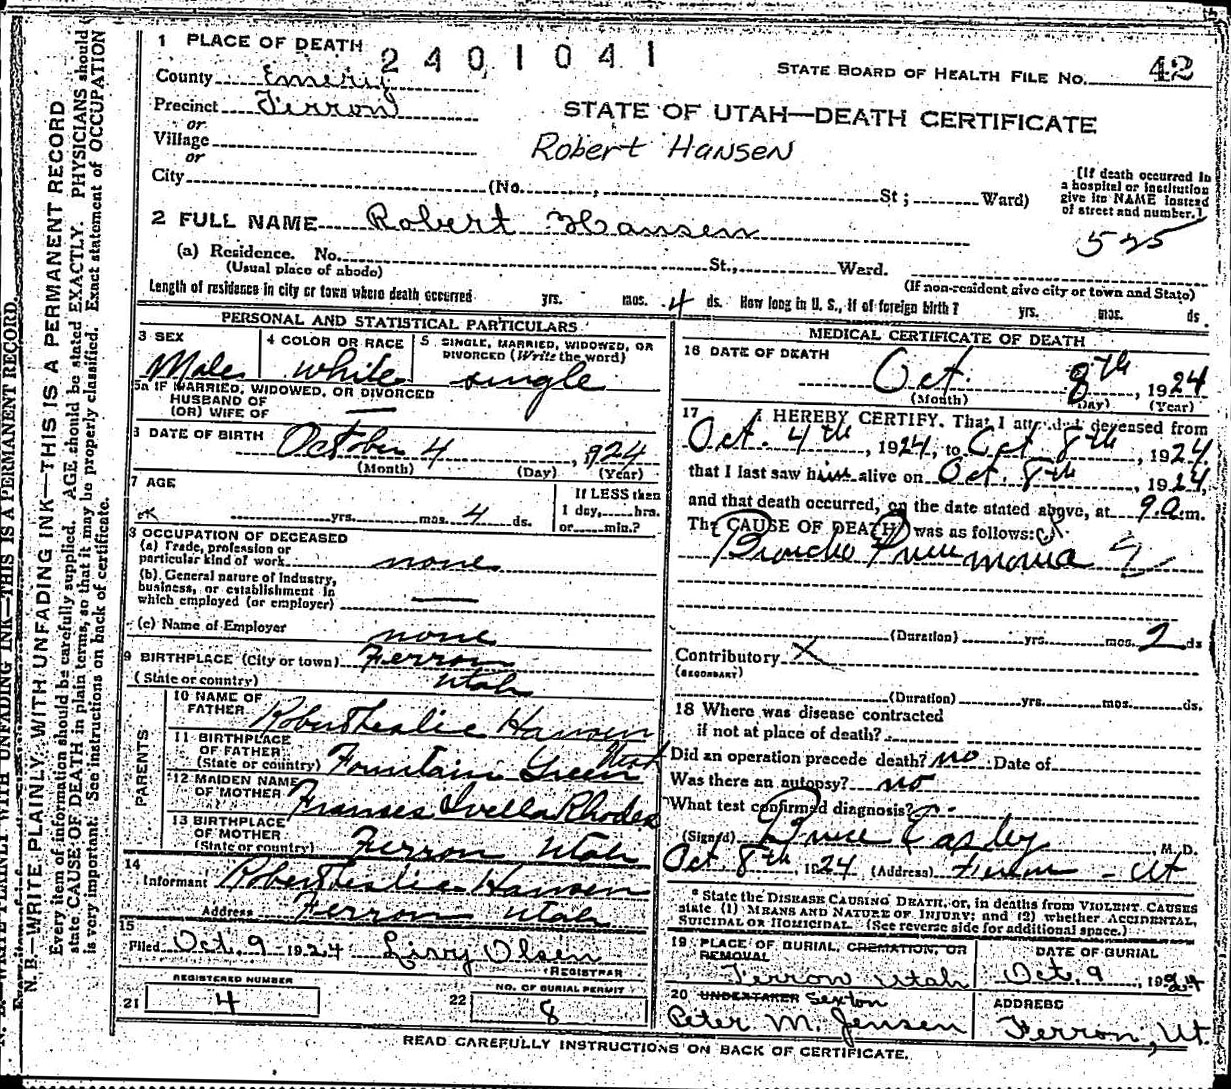 N.B.—WRITE PLAINLY WITH UNFADING INK—THIS IS A PERMANENT RECORD
Every item of information should be carefully supplied. AGE should be stated EXACTLY. PHYSICIANS should
state CAUSE OF DEATH in plain terms, so that it may be properly classified. Exact statement of OCCUPATION
is very important. See instructions on back of certificate.
1 PLACE OF DEATH
2401041
STATE BOARD OF HEALTH FILE NO. 42
County Emery
Precinct Ferron
or
Village
or
City (No. , St ; Ward)
STATE OF UTAH—DEATH CERTIFICATE
Robert Hansen
[If death occurred in
a hospital or institution
give its NAME instead
of street and number.]
525
2 FULL NAME Robert Hansen
(a) Residence. No. St., Ward.
(Usual place of abode)
(If non-resident give city or town and State)
Length of residence in city or town where death occurred yrs. mos. 4 ds. How long in U. S., if of foreign birth? yrs. mos. ds.
PERSONAL AND STATISTICAL PARTICULARS
3 SEX
Male
4 COLOR OR RACE
white
5 SINGLE, MARRIED, WIDOWED, OR
DIVORCED (Write the word)
single
5a IF MARRIED, WIDOWED, OR DIVORCED
HUSBAND OF
(OR) WIFE OF —
6 DATE OF BIRTH October 4, 1924
(Month) (Day) (Year)
7 AGE
yrs. mos. 4 ds.
If LESS than
1 day, hrs.
or min.?
8 OCCUPATION OF DECEASED
(a) Trade, profession or
particular kind of work none
(b) General nature of Industry,
business, or establishment in
which employed (or employer) —
(c) Name of Employer none
9 BIRTHPLACE (City or town) Ferron
(State or country) Utah
PARENTS
10 NAME OF
FATHER Robert Leslie Hansen
11 BIRTHPLACE
OF FATHER
(State or country) Fountain Green Utah
12 MAIDEN NAME
OF MOTHER Frances Ivella Rhodes
13 BIRTHPLACE
OF MOTHER
(State or country) Ferron Utah
14
Informant Robert Leslie Hansen
Address Ferron Utah
15
Filed Oct. 9 1924 Livy Olsen
REGISTRAR
REGISTERED NUMBER
21 4
NO. OF BURIAL PERMIT
22 8
MEDICAL CERTIFICATE OF DEATH
16 DATE OF DEATH
Oct. 8th, 1924
(Month) (Day) (Year)
17 I HEREBY CERTIFY, That I attended deceased from
Oct. 4th, 1924, to Oct 8th, 1924
that I last saw him alive on Oct. 8th, 1924,
and that death occurred, on the date stated above, at 9 a.m.
The CAUSE OF DEATH was as follows:
Broncho Pneumonia
(Duration) yrs. mos. 2 ds
Contributory X
(SECONDARY)
(Duration) yrs. mos. ds.
18 Where was disease contracted
if not at place of death?
Did an operation precede death? no Date of
Was there an autopsy? no
What test confirmed diagnosis?
(Signed) Bruce Easley M.D.
Oct 8th, 1924 (Address) Ferron - Ut
* State the DISEASE CAUSING DEATH, or, in deaths from VIOLENT CAUSES
state (1) MEANS AND NATURE OF INJURY; and (2) whether ACCIDENTAL,
SUICIDAL or HOMICIDAL. (See reverse side for additional space.)
19 PLACE OF BURIAL, CREMATION, OR
REMOVAL
Ferron Utah
DATE OF BURIAL
Oct. 9, 1924
20 UNDERTAKER Sexton
Peter M. Jensen
ADDRESS
Ferron, Ut.
READ CAREFULLY INSTRUCTIONS ON BACK OF CERTIFICATE.